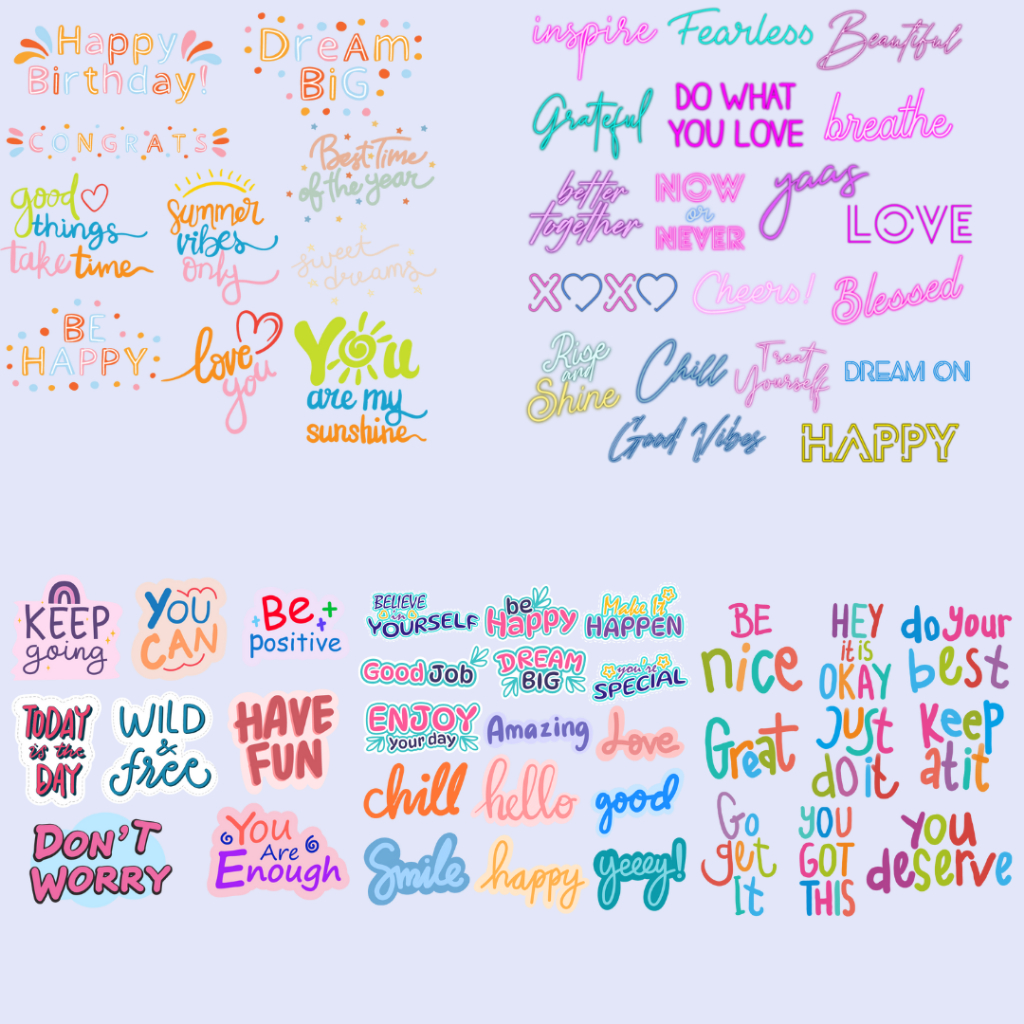 Happy
Birthday!
DreAm
BiG
CONGRATS
Best Time
of the year
good
things
take time
summer
vibes
only
sweet
dreams
BE
HAPPY
love
you
You
are my
sunshine
inspire
Fearless
Beautiful
Grateful
DO WHAT
YOU LOVE
breathe
better
together
NOW
or
NEVER
yaas
LOVE
XOXO
Cheers!
Blessed
Rise
and
Shine
Chill
Treat
Yourself
DREAM ON
Good Vibes
HAPPY
KEEP
going
YOU
CAN
Be +
positive
TODAY
is the
DAY
WILD
&
free
HAVE
FUN
DON'T
WORRY
You
Are
Enough
BELIEVE
in
YOURSELF
be
Happy
Make It
HAPPEN
Good Job
DREAM
BIG
you're
SPECIAL
ENJOY
your day
Amazing
Love
chill
hello
good
Smile
happy
yeeey!
BE
nice
HEY
it is
OKAY
do your
best
Great
Just
do it
Keep
at it
Go
get
It
YOU
GOT
THIS
you
deserve